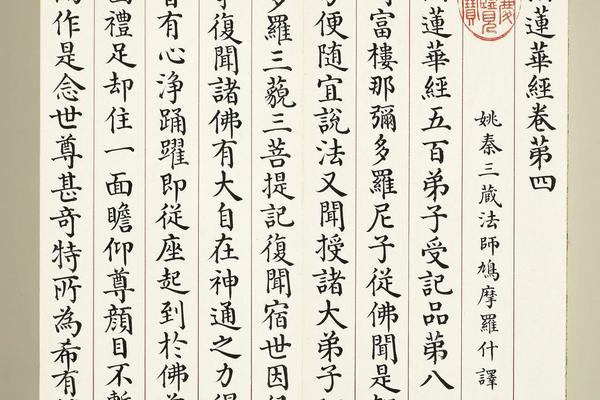 蓮華經卷第四
姚秦三藏法師鳩摩羅什譯
蓮華經五百弟子受記品第八
富樓那彌多羅尼子從佛聞是
便隨宜說法又聞授諸大弟子
多羅三藐三菩提記復聞宿世因
復聞諸佛有大自在神通之力得
有心淨踊躍即從座起到於佛
禮足却住一面瞻仰尊顏目不暫
作是念世尊甚奇特所為希有